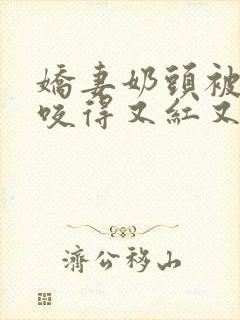 嬌妻奶頭被
咬得又紅又
濟公移山